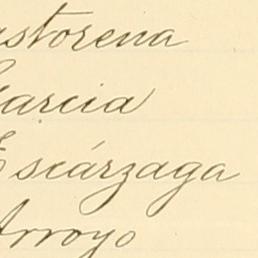 astorena
Garcia
Escárzaga
Arroyo